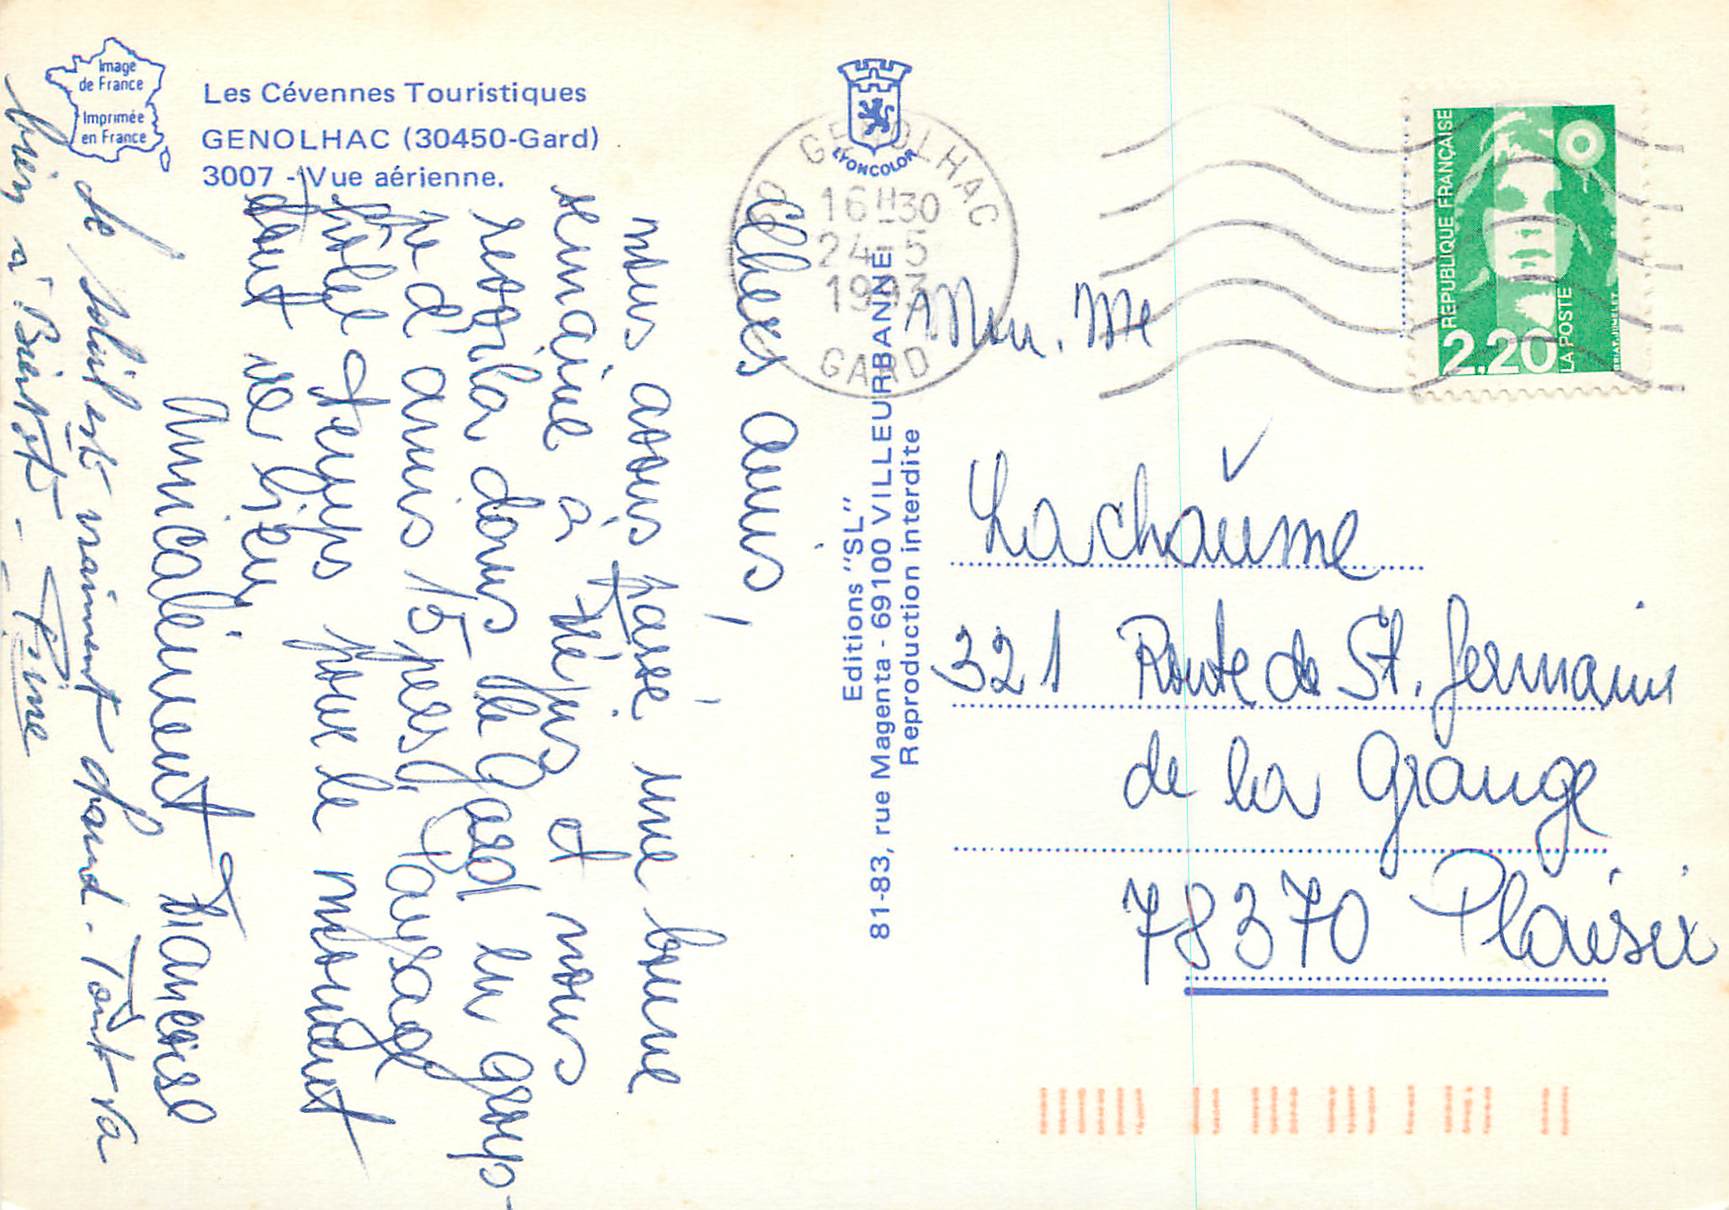 Image
de France
Imprimée
en France
Les Cévennes Touristiques
GENOLHAC (30450-Gard)
3007 - Vue aérienne.
chers amis,
nous avons passé une bonne
semaine à et nous
revoila dans le Gard en group-
pe d'amis 15 pers. Paysage
temps pour le moment
tout va bien
Amicalement Francoise
le soleil est vraiment chaud. Tout va
bien à Bientôt -
LYONCOLOR
Editions "SL"
81-83, rue Magenta - 69100 VILLEURBANNE
Reproduction interdite
GENOLHAC
16H30
24-5
1993
GARD
REPUBLIQUE FRANÇAISE
2,20
LA POSTE
BRIAT-JUMELET
Mon. Me
Lachaüme
321 Route de St. Germain
de la Grange
78370 Plaisir